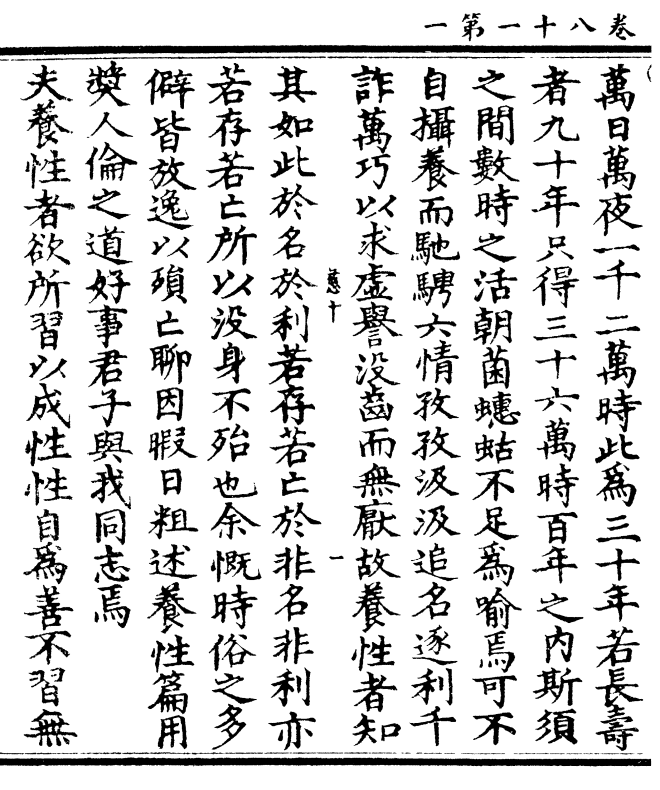 卷八十一第一
萬日萬夜一千二萬時此爲三十年若長壽
者九十年只得三十六萬時百年之内斯須
之間數時之活朝菌蟪蛄不足爲喻焉可不
自攝養而馳騁六情孜孜汲汲追名逐利千
詐萬巧以求虛譽没齒而無厭故養性者知
慈十
一
其如此於名於利若存若亡於非名非利亦
若存若亡所以没身不殆也余慨時俗之多
僻皆放逸以殞亡聊因暇日粗述養性篇用
奬人倫之道好事君子與我同志焉
夫養性者欲所習以成性性自爲善不習無